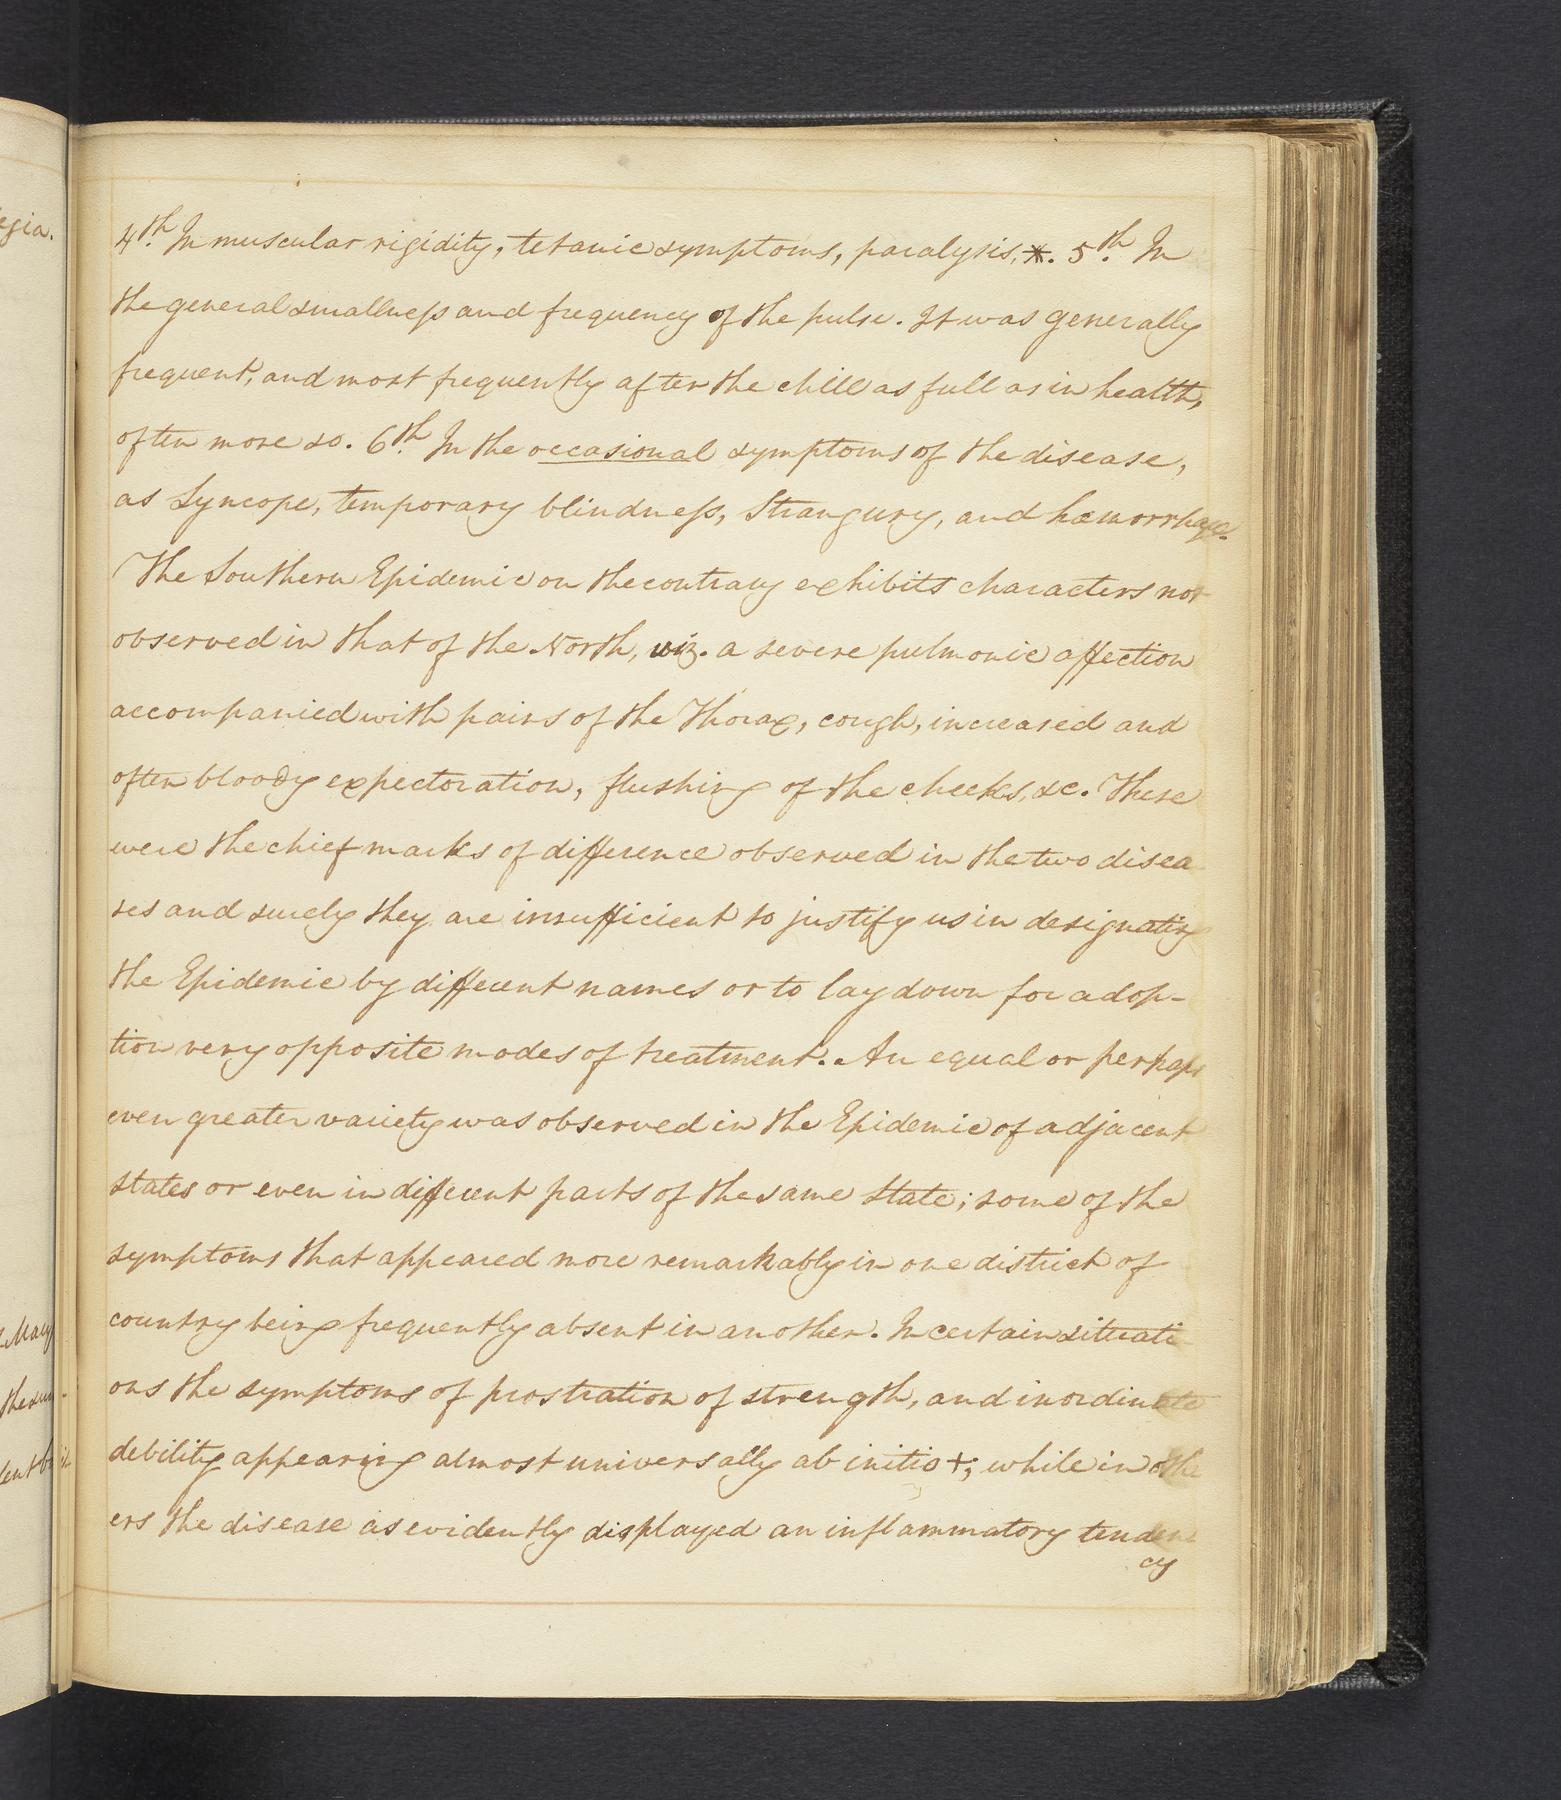 egia.
4th. In muscular rigidity, tetanic symptoms, paralysis, *. 5th. In
the general smallness and frequency of the pulse. It was generally
frequent, and most frequently after the chill as full as in health,
often more so. 6th. In the occasional symptoms of the disease,
as Syncope, temporary blindness, Strangury, and hæmorrhage.
The Southern Epidemic on the contrary exhibits characters not
observed in that of the North, viz. a severe pulmonic affection
accompanied with pains of the Thorax, cough, increased and
often bloody expectoration, flushing of the cheeks, &c. These
were the chief marks of difference observed in the two disea
ses and surely they are insufficient to justify us in designating
the Epidemic by different names or to lay down for adop-
tion very opposite modes of treatment. An equal or perhaps
even greater variety was observed in the Epidemic of adjacent
states or even in different parts of the same State; some of the
symptoms that appeared more remarkably in one district of
country being frequently absent in another. In certain situati
ons the symptoms of prostration of strength, and inordinate
debility appearing almost universally ab initio +; while in oth
ers the disease as evidently displayed an inflammatory tenden
cy